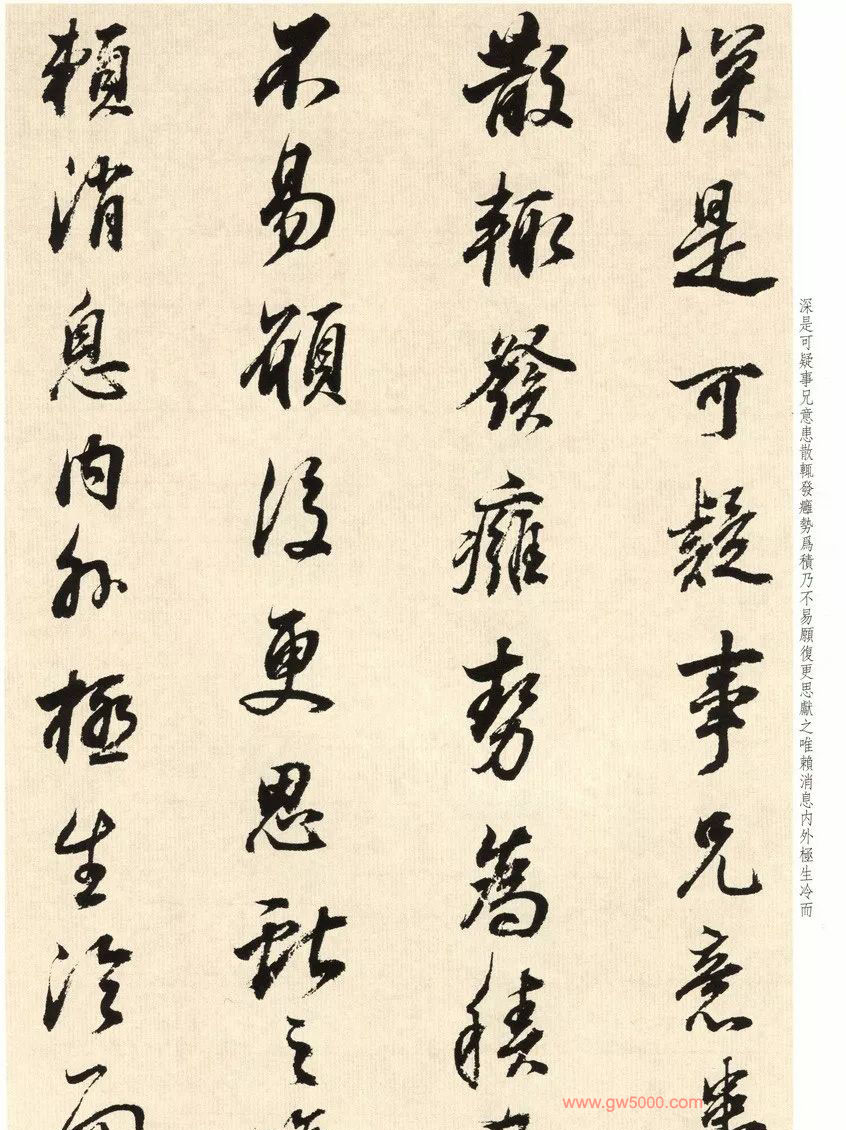 深是可疑事兄意患
散輒發癰勢為積
不易願復更思獻之
賴消息内外極生冷而
深是可疑事兄意患散輒發癰勢爲積乃不易願復更思獻之唯賴消息内外極生冷而
www.gw5000.com